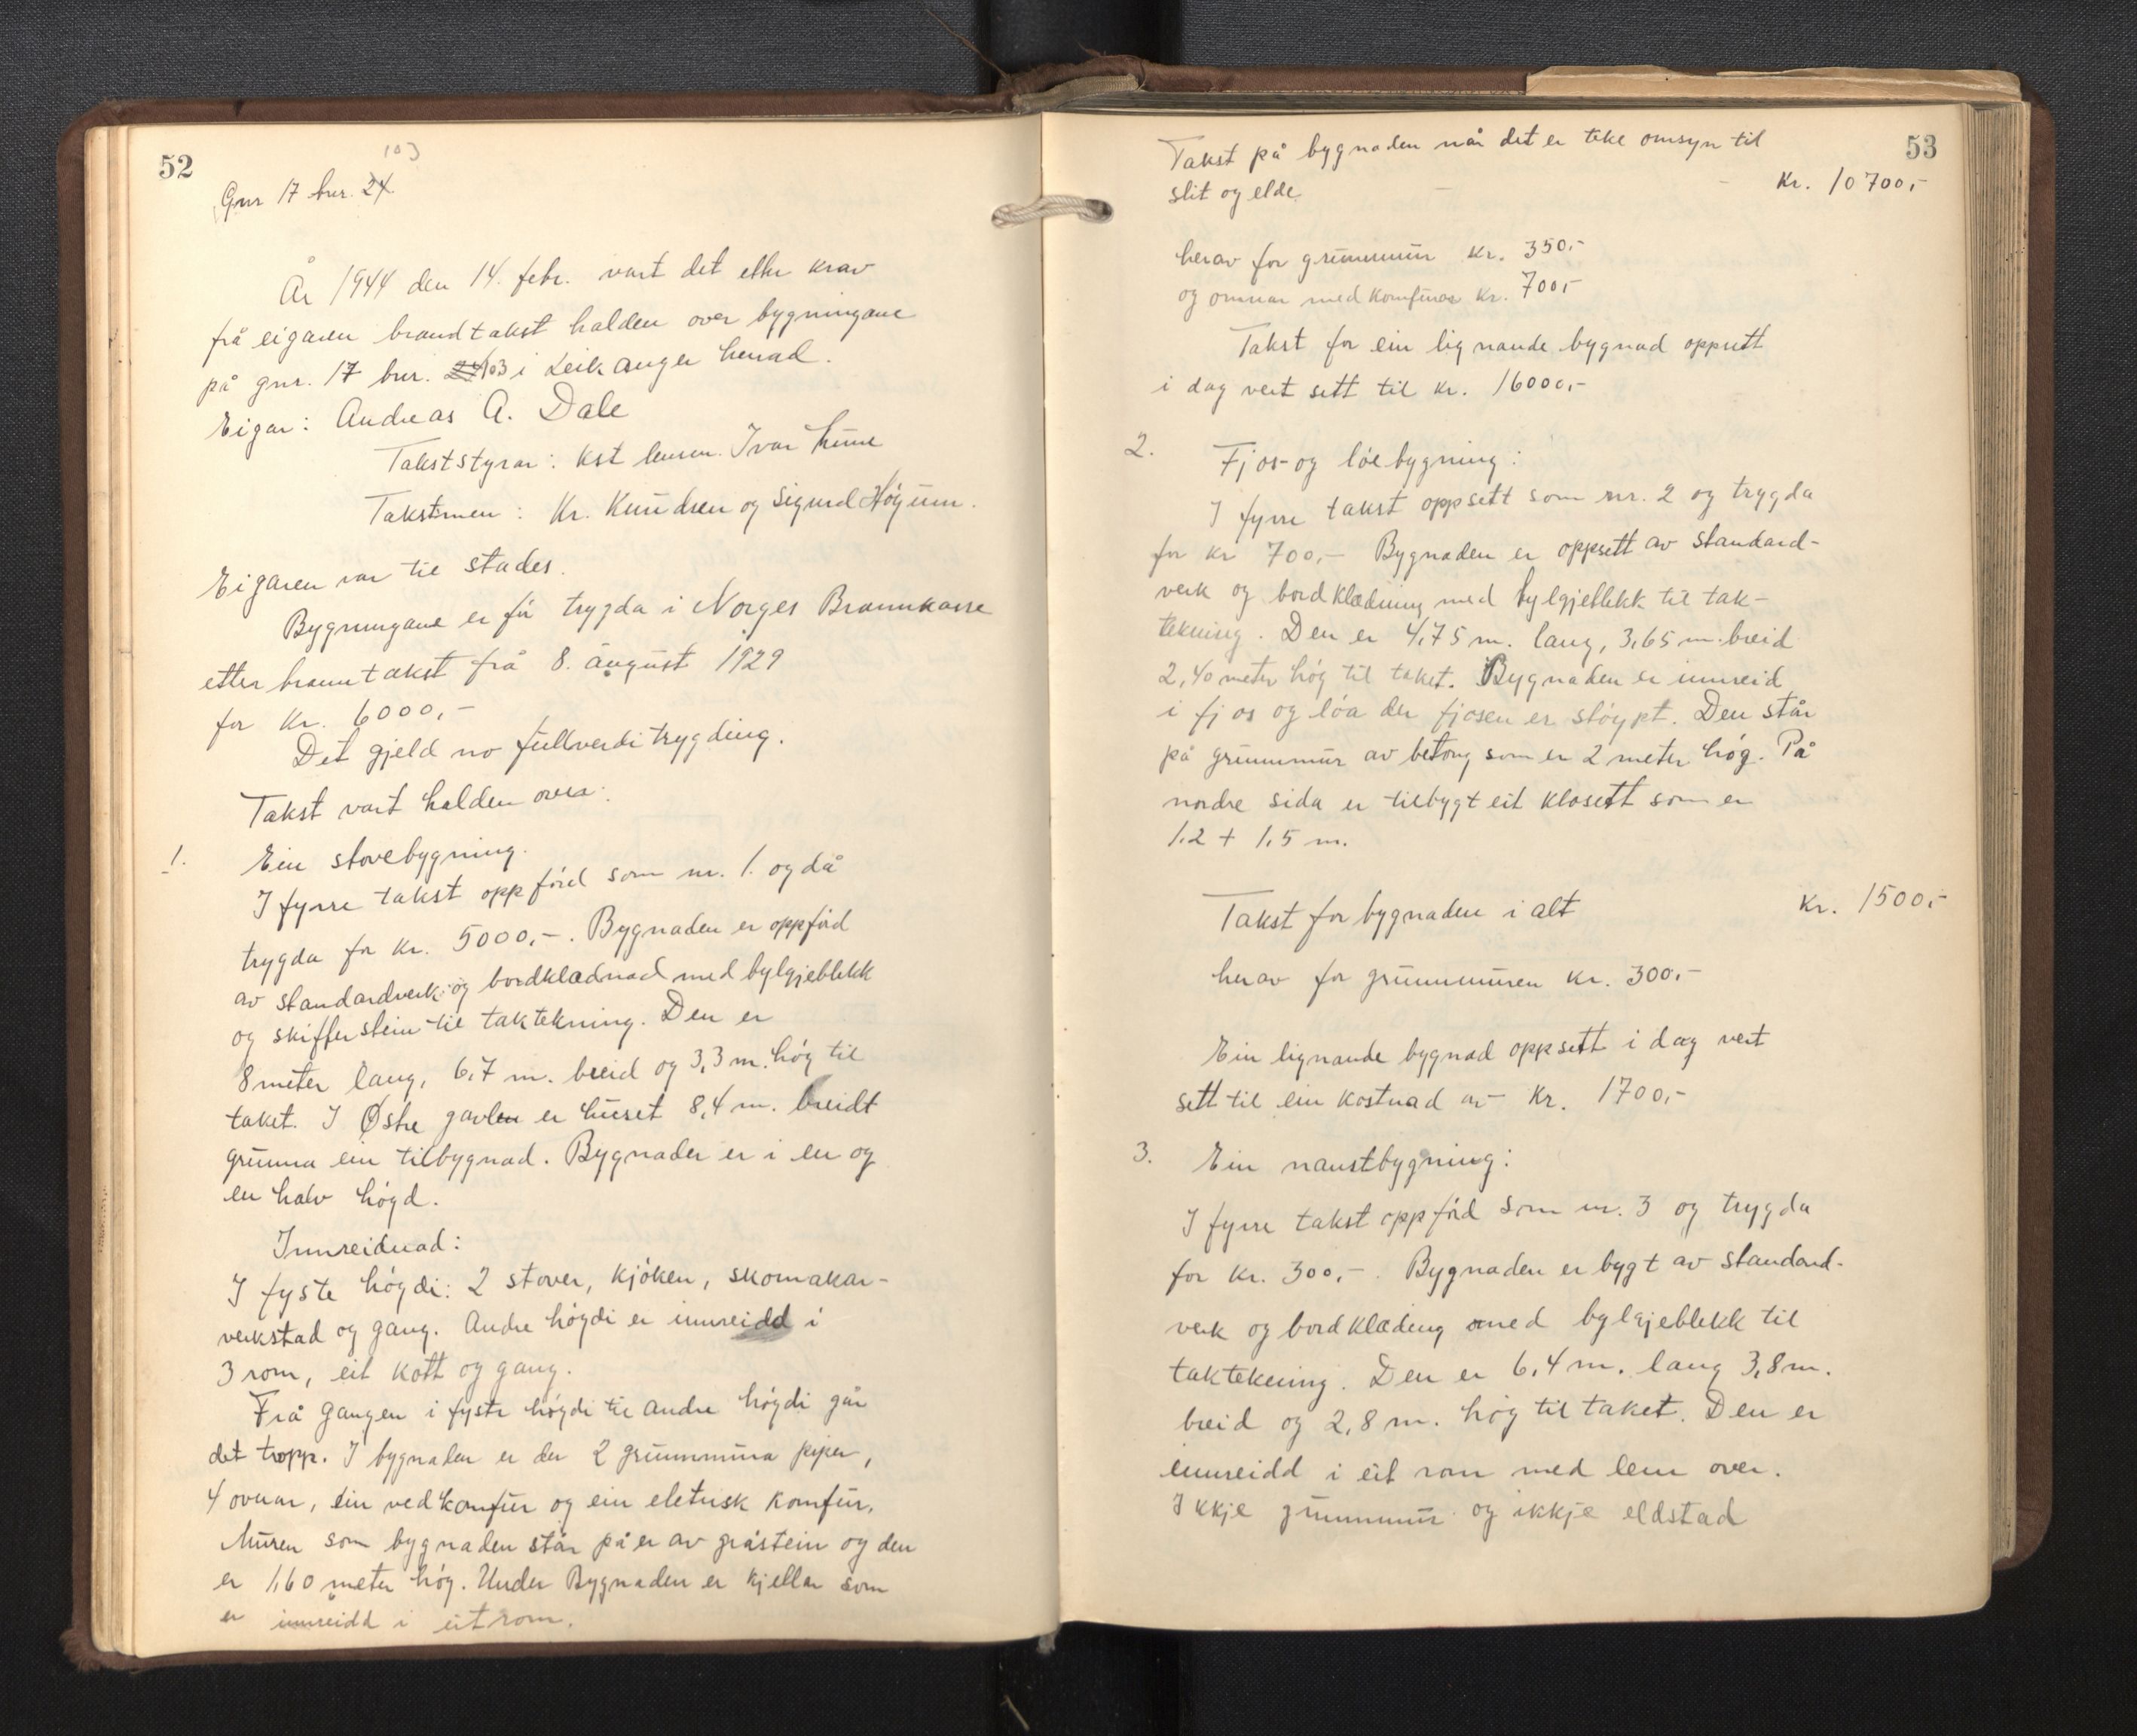 52
103
Gnr 17 bnr. 24.
År 1944 den 14. febr. vart det etter krav
frå eigaren brandtakst halden over bygningane
på gnr. 17 bnr. 24 103 i Leikanger herad.
Eigar: Andreas A. Dale
Takststyrar: Kst lensm. Ivar Hune
Takstmen: Kr. Knudsen og Sigurd Høgum.
Eigaren var til stades.
Bygningane er før trygda i Norges Brannkasse
etter branntakst frå 8. august 1929
for Kr. 6000,-
Det gjeld no fullverditrygding.
Takst vart halden over:
1. Ein stovebygning.
I fyrre takst oppførd som nr. 1. og då
trygda for kr. 5000,-. Bygnaden er oppførd
av standardverk og bordklædnad med bylgjeblekk
og skifferstein til taktekning. Den er
8 meter lang, 6,7 m. breid og 3,3 m. høg til
taket. I Østre gavlen er huset 8,4 m. breidt
grunna ein tilbygnad. Bygnader er i en og
en halv høgd.
Innreidnad:
I fyste høgdi: 2 stover, kjøken, skomakar-
verkstad og gang. Andre høgdi er innreidd i
3 rom, eit kott og gang.
Frå gangen i fyste høgdi til andre høgdi går
det tropp. I bygnaden er der 2 grunnmura piper,
4 ovnar, ein vedkomfur og ein eletrisk komfur.
Muren som bygnaden står på er av gråstein og den
er 1,60 meter høg. Under Bygnaden er kjellar som
er innreidd i eit rom.
53
Takst på bygnaden når det er teke omsyn til
slit og elde. - - Kr. 10700,-
herav for grunnmur kr. 350,-
og omnar med komfurar kr. 700,-
Takst for ein lignande bygnad oppsett
i dag vert sett til kr. 16000,-
2. Fjos- og løebygning:
I fyrre takst oppsett som nr. 2 og trygda
for kr 700,- Bygnaden er oppsett av standard-
verk og bordklædning med bylgjeblekk til tak-
tekning. Den er 4,75 m. lang, 3,65 m. breid
2,40 meter høg til taket. Bygnaden er innreid
i fjos og løa der fjosen er støypt. Den står
på grunnmur av betong som er 2 meter høg. På
nordre sida er tilbygt eit klosett som er
1,2 + 1,5 m.
Takst for bygnaden i alt Kr. 1500,-
herav for grunnmuren kr. 300,-
Ein lignande bygnad oppsett i dag vert
sett til ein kostnad av Kr. 1700,-
3. Ein naustbygning:
I fyrre takst oppførd som nr. 3 og trygda
for kr. 300,-. Bygnaden er bygt av standard-
verk og bordklæding med bylgjeblekk til
taktekning. Den er 6,4 m. lang 3,8 m.
breid og 2,8 m. høg til taket. Den er
innreidd i eit rom med lem over.
Ikkje grunnmur og ikkje eldstad